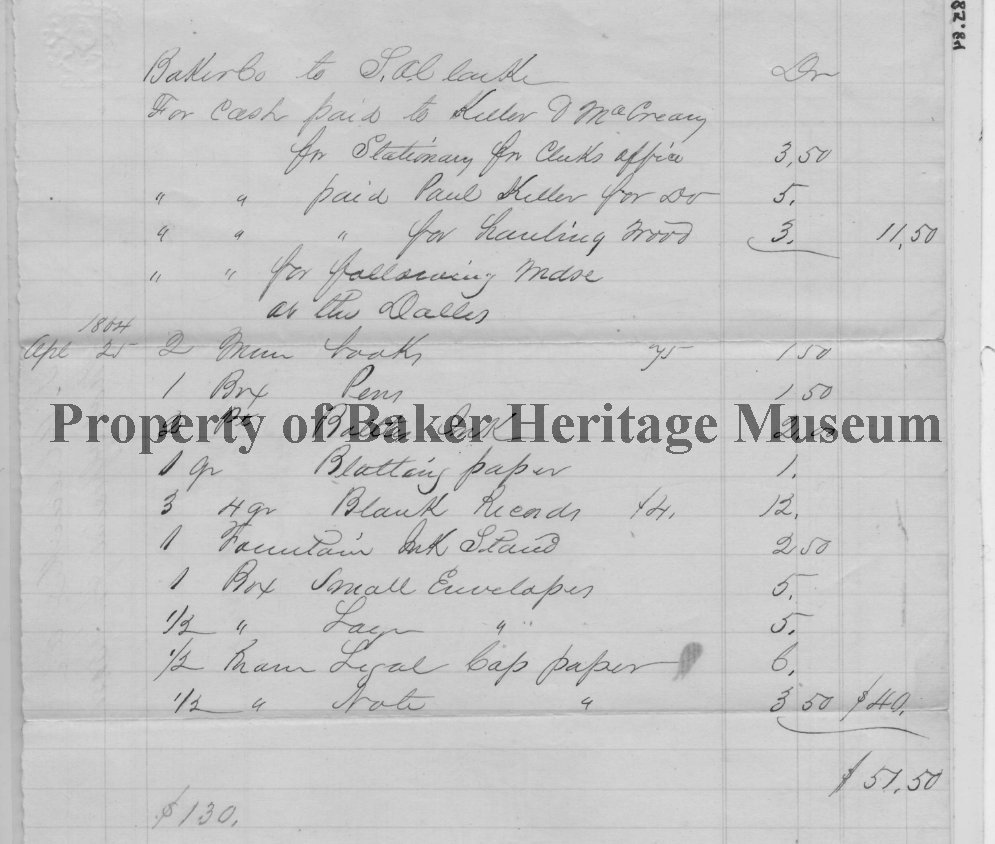 82.84
Baker Co to S. A Clarke Dr
For Cash paid to Keller & McCreary
for Stationary for Clerks office 3,50
" " paid Paul Keller for Do 5.
" " " for hauling Wood 3. 11,50
" " for following Mdse
at the Dalles
1864
Apl 25 2 Mem books 75 1 50
1 Box Pens 1 50
Property of Baker Heritage Museum
Ink 2,00
1 qr Blotting paper 1.
3 4qr Blank Records $4. 12.
1 Fountain Ink Stand 2 50
1 Box Small Envelopes 5.
1/2 " Large " 5.
1/2 Ream Legal Cap paper 6.
1/2 " Note " 3 50 $40.
$51.50
$130.